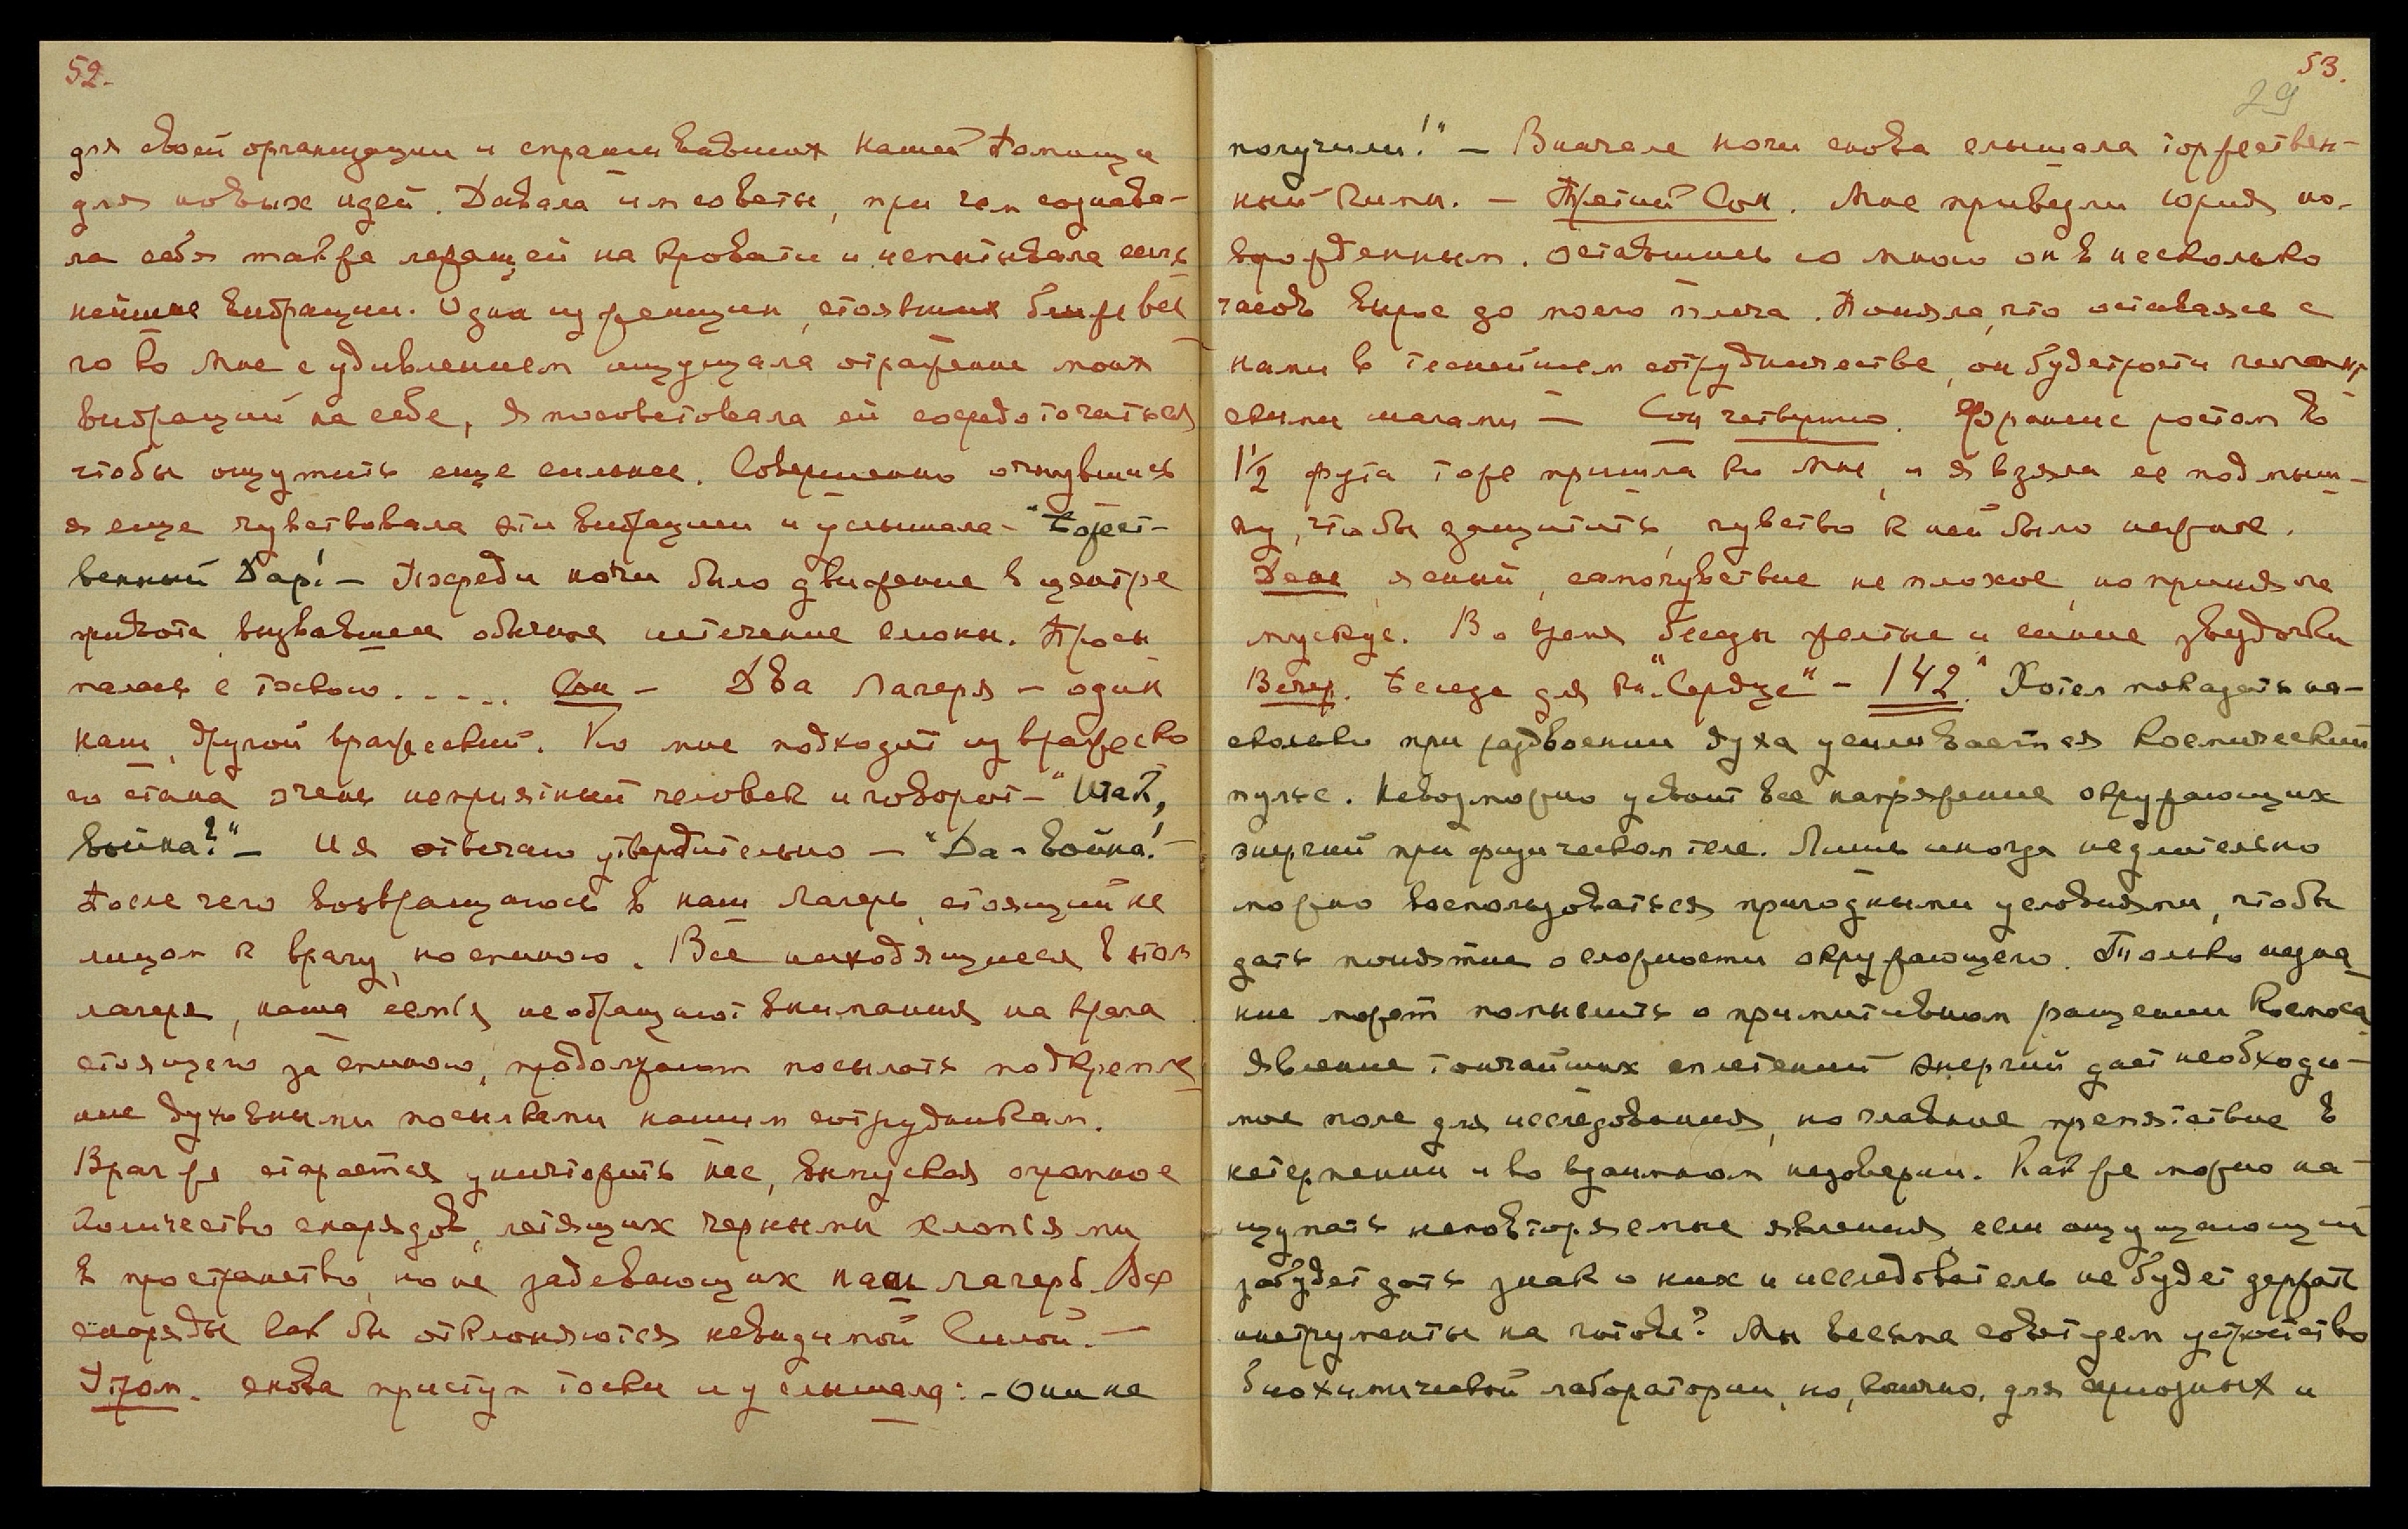 52.
для своей организации и спрашивавших нашей помощи
для новых идей. Давала им советы, при чем сознава-
ла себя также лежащей на кровати и испытывала силь
нейшие вибрации. Одна из женщин, стоявших ближе все
го ко мне с удивлением ощущала отражение моих
вибраций на себе, я посоветовала ей сосредоточиться
чтобы ощутить еще сильнее. Совершенно очнувшись
я еще чувствовала эти вибрации и услышала – "Божест-
венный Дар! – Посреди ночи было движение в центре
живота, вызвавшее обычное истечение слюны. Просы
палась с тоскою..... Сон – Два Лагеря – один
наш, другой вражеский. Ко мне подходит из вражеско
го стана очень неприятный человек и говорит – "Итак,
война?" – И я отвечаю утвердительно – "Да – война! –
После чего возвращаюсь в наш Лагерь, стоящий не
лицом к врагу, но спиною. Все находящиеся в этом
лагере, наша семья не обращают внимания на врага
стоящего за спиною, продолжают посылать подкрепле
ние духовными посылками нашим сотрудникам.
Враг же старается уничтожить нас, выпуская огромное
количество снарядов, летящих черными хлопьями
в пространство, но не задевающих наш лагерь. Все
снаряды как бы отклоняются невидимой Силой. –
Утром. снова приступ тоски и услышала: – Они не
53.
29
получили!" – Вначале ночи снова слышала торжествен-
ный Гимн. – Третий Сон. Мне привели Юрия но-
ворожденным. Оставшись со мною он в несколько
часов вырос до моего плеча. Поняла, что оставаясь с
нами в теснейшем сотрудничестве, он будет расти гигант
скими шагами – Сон четвертый. Франсис ростом в
1½ фута тоже пришла ко мне, и я взяла ее под мыш-
ку, чтобы защитить, чувство к ней было нежное.
День ясный, самочувствие не плохое, но приняла
мускус. Во время Беседы желтые и синие звездочки
Вечер. Беседа для кн. "Сердце" – 142." Хотел показать на-
сколько при раздвоении духа усиливается космический
пульс. Невозможно усвоить все напряжение окружающих
энергий при физическом теле. Лишь иногда недлительно
можно воспользоваться пригодными условиями, чтобы
дать понятие о сложности окружающего. Только незна
ние может помыслить о примитивном ращении Космоса
Явление тончайших сплетений энергий дает необходи-
мое поле для исследования, но главное препятствие в
нетерпении и во взаимном недоверии. Как же можно на-
щупать неповторяемые явления, если ощущающий
забудет дать знак о них и исследователь не будет держать
инструменты на готове? Мы весьма советуем устройство
биохимической лаборатории, но, конечно, для и